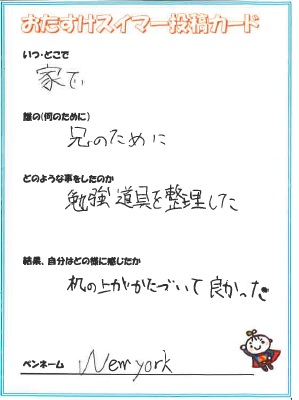 おたすけスイマー投稿カード
いつ・どこで
家で
誰の(何のために)
兄のために
どのような事をしたのか
勉強道具を整理した
結果、自分はどの様に感じたか
机の上がかたづいて良かった
ペンネーム Newyork